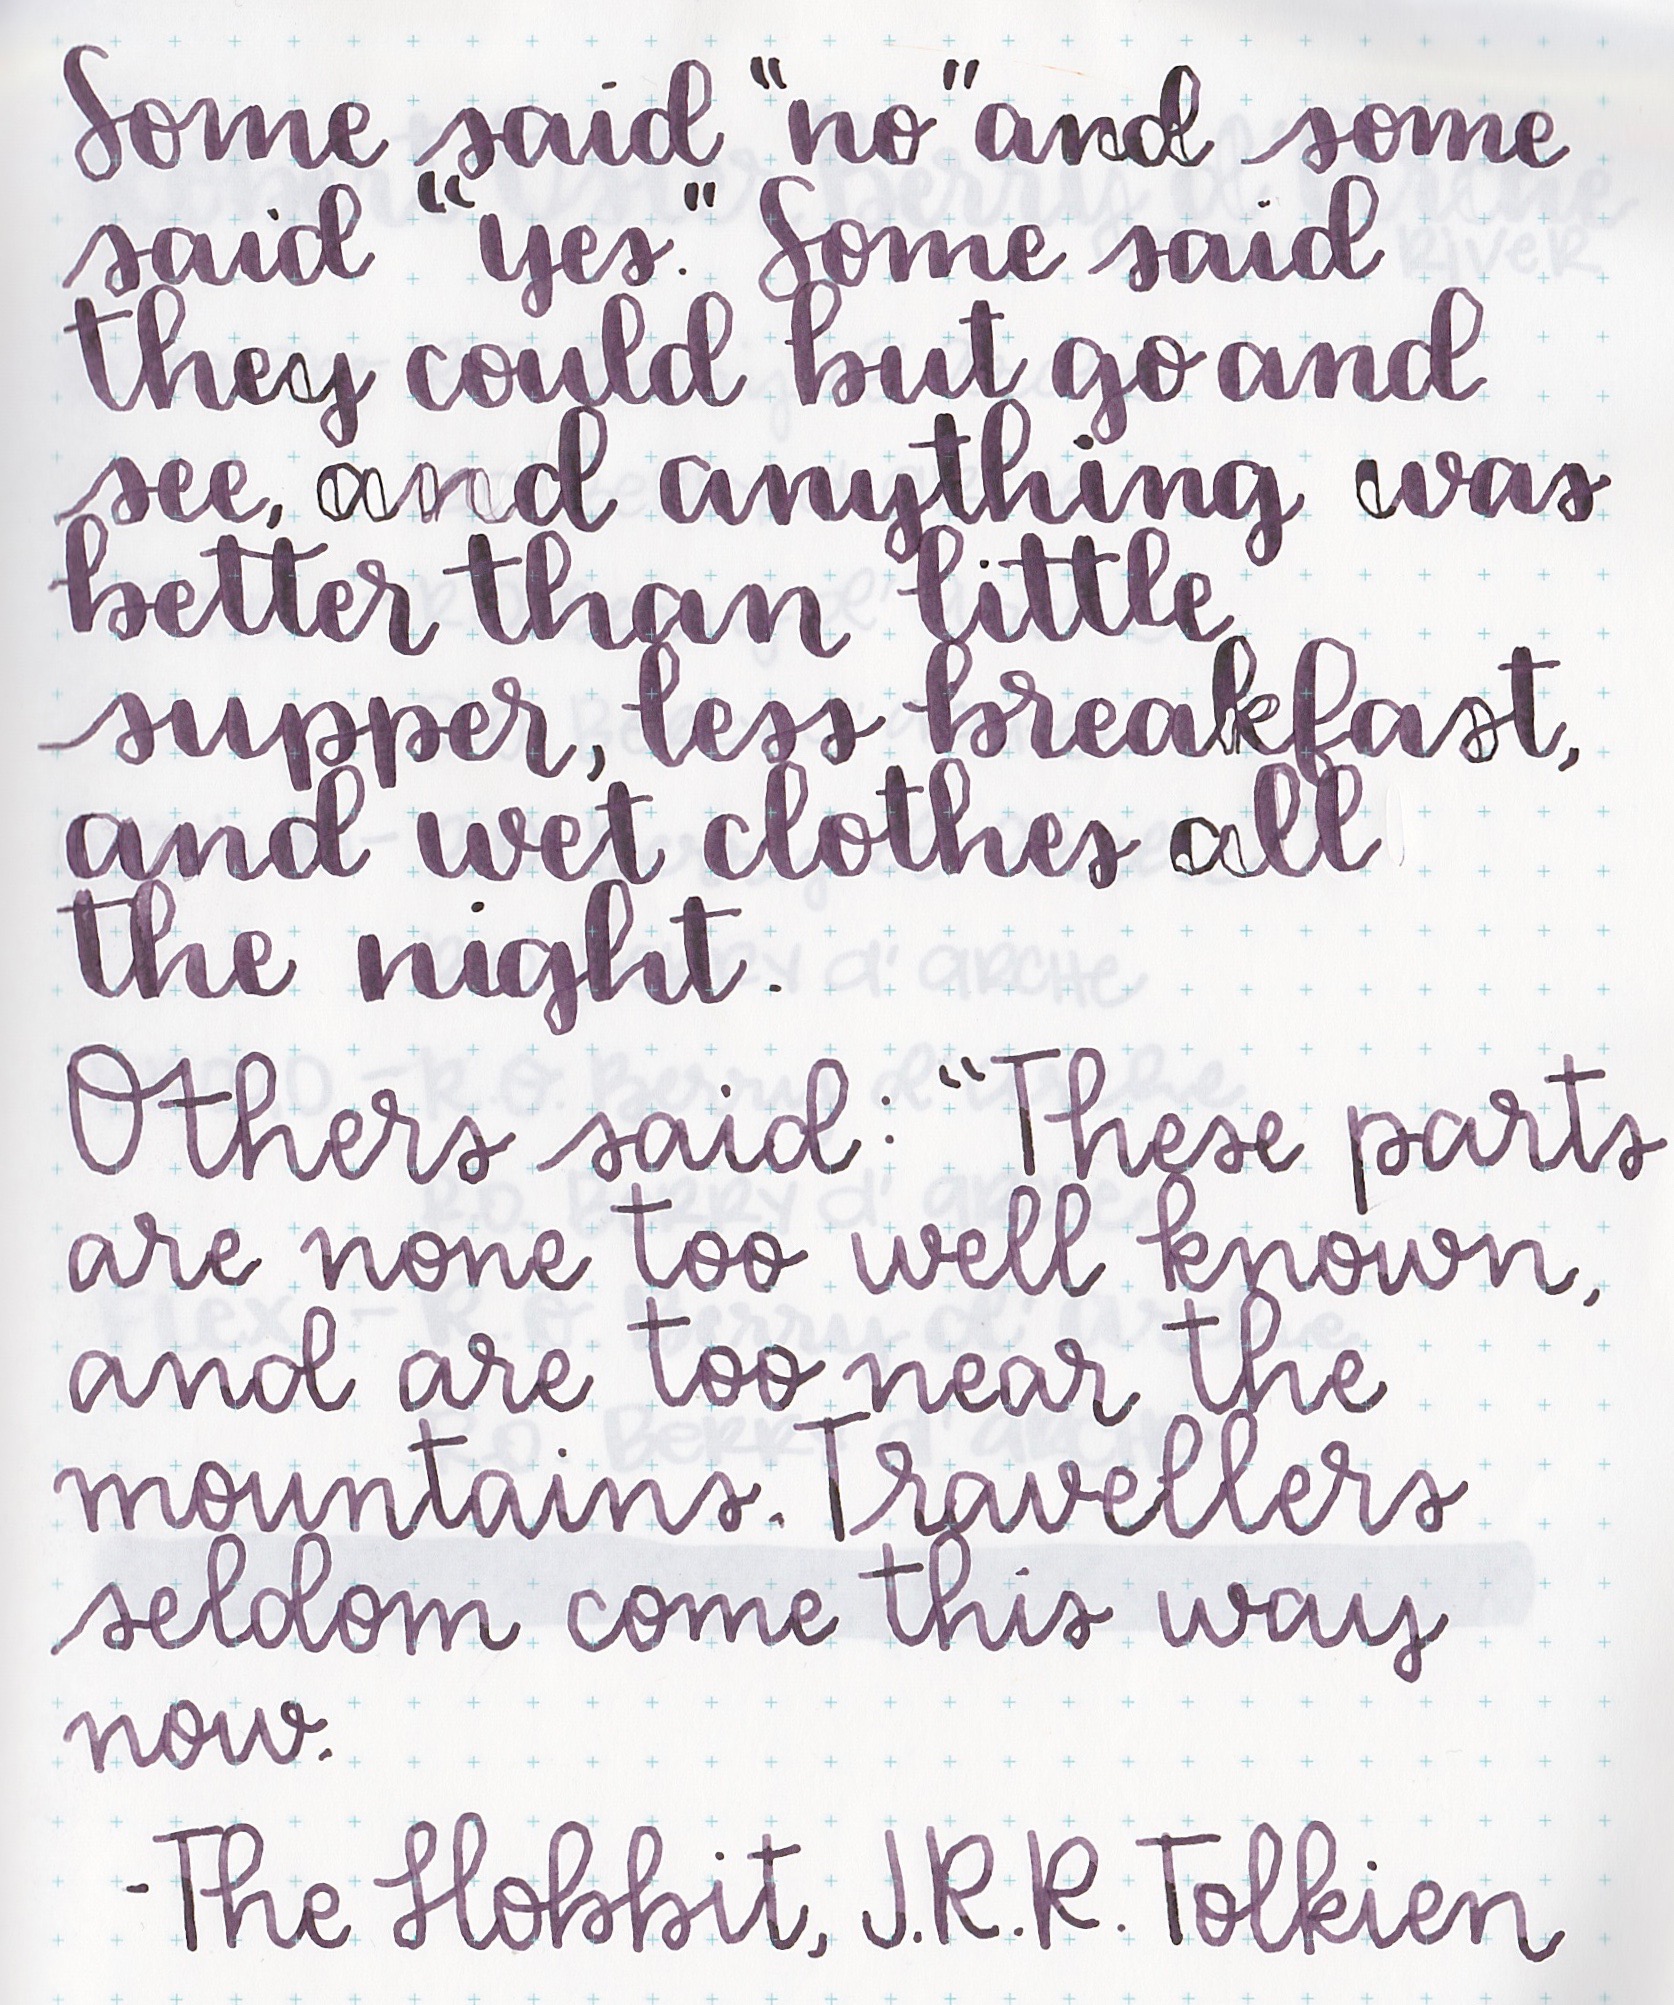 Some said "no" and some
said "yes." Some said
they could but go and
see, and anything was
better than little
supper, less breakfast,
and wet clothes all
the night.
Others said: "These parts
are none too well known,
and are too near the
mountains. Travellers
seldom come this way
now.
-The Hobbit, J.R.R. Tolkien